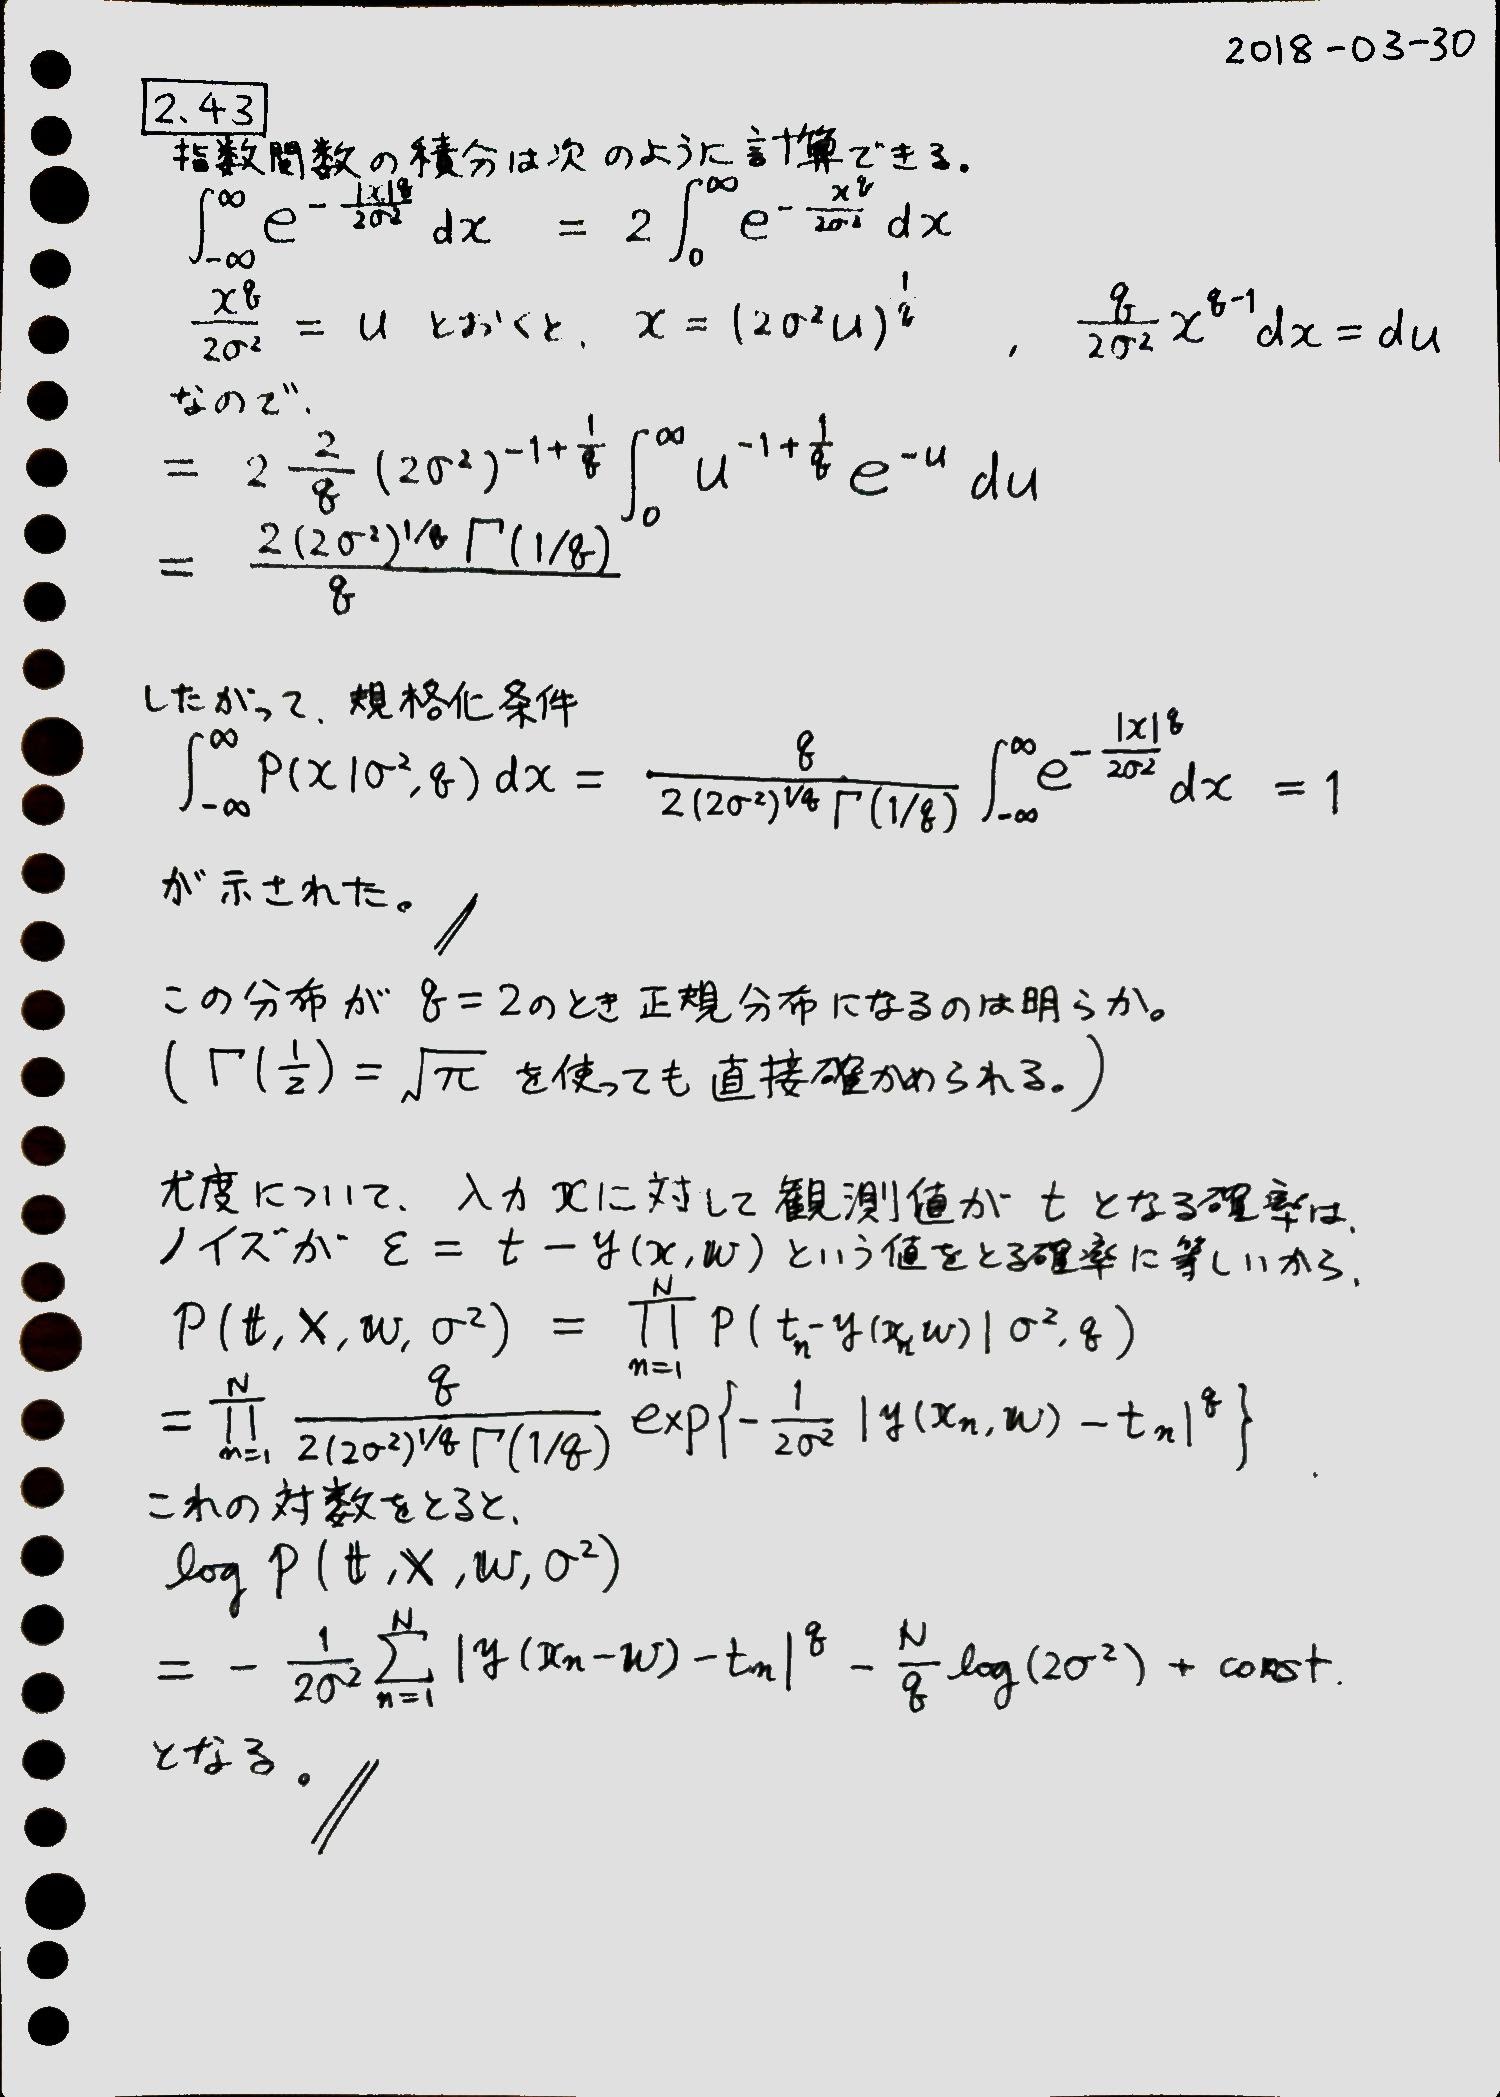 2018-03-30
2.43
指数関数の積分は次のように計算できる.
∫_{-∞}^{∞} e^{-\frac{|x|^q}{2σ^2}} dx = 2 ∫_0^∞ e^{-\frac{x^q}{2σ^2}} dx
\frac{x^q}{2σ^2} = u とおくと、 x = (2σ^2 u)^{\frac{1}{q}} , \frac{q}{2σ^2} x^{q-1} dx = du
なので、
= 2 \frac{2}{q} (2σ^2)^{-1+\frac{1}{q}} ∫_0^∞ u^{-1+\frac{1}{q}} e^{-u} du
= \frac{2(2σ^2)^{1/q} Γ(1/q)}{q}
したがって、規格化条件
∫_{-∞}^{∞} P(x|σ^2, q) dx = \frac{q}{2(2σ^2)^{1/q} Γ(1/q)} ∫_{-∞}^{∞} e^{-\frac{|x|^q}{2σ^2}} dx = 1
が示された。//
この分布が q=2のとき正規分布になるのは明らか。
( Γ(\frac{1}{2}) = √π を使っても直接確かめられる。)
尤度について、入力 x に対して観測値が t となる確率は、
ノイズが ε = t - y(x, w) という値をとる確率に等しいから、
P(t, X, w, σ^2) = ∏_{n=1}^{N} P( t_n - y(x_n w) | σ^2, q )
= ∏_{n=1}^{N} \frac{q}{2(2σ^2)^{1/q} Γ(1/q)} exp{ -\frac{1}{2σ^2} |y(x_n, w) - t_n|^q }
これの対数をとると、
log P(t, X, w, σ^2)
= - \frac{1}{2σ^2} ∑_{n=1}^{N} |y(x_n - w) - t_n|^q - \frac{N}{q} log(2σ^2) + const.
となる。//